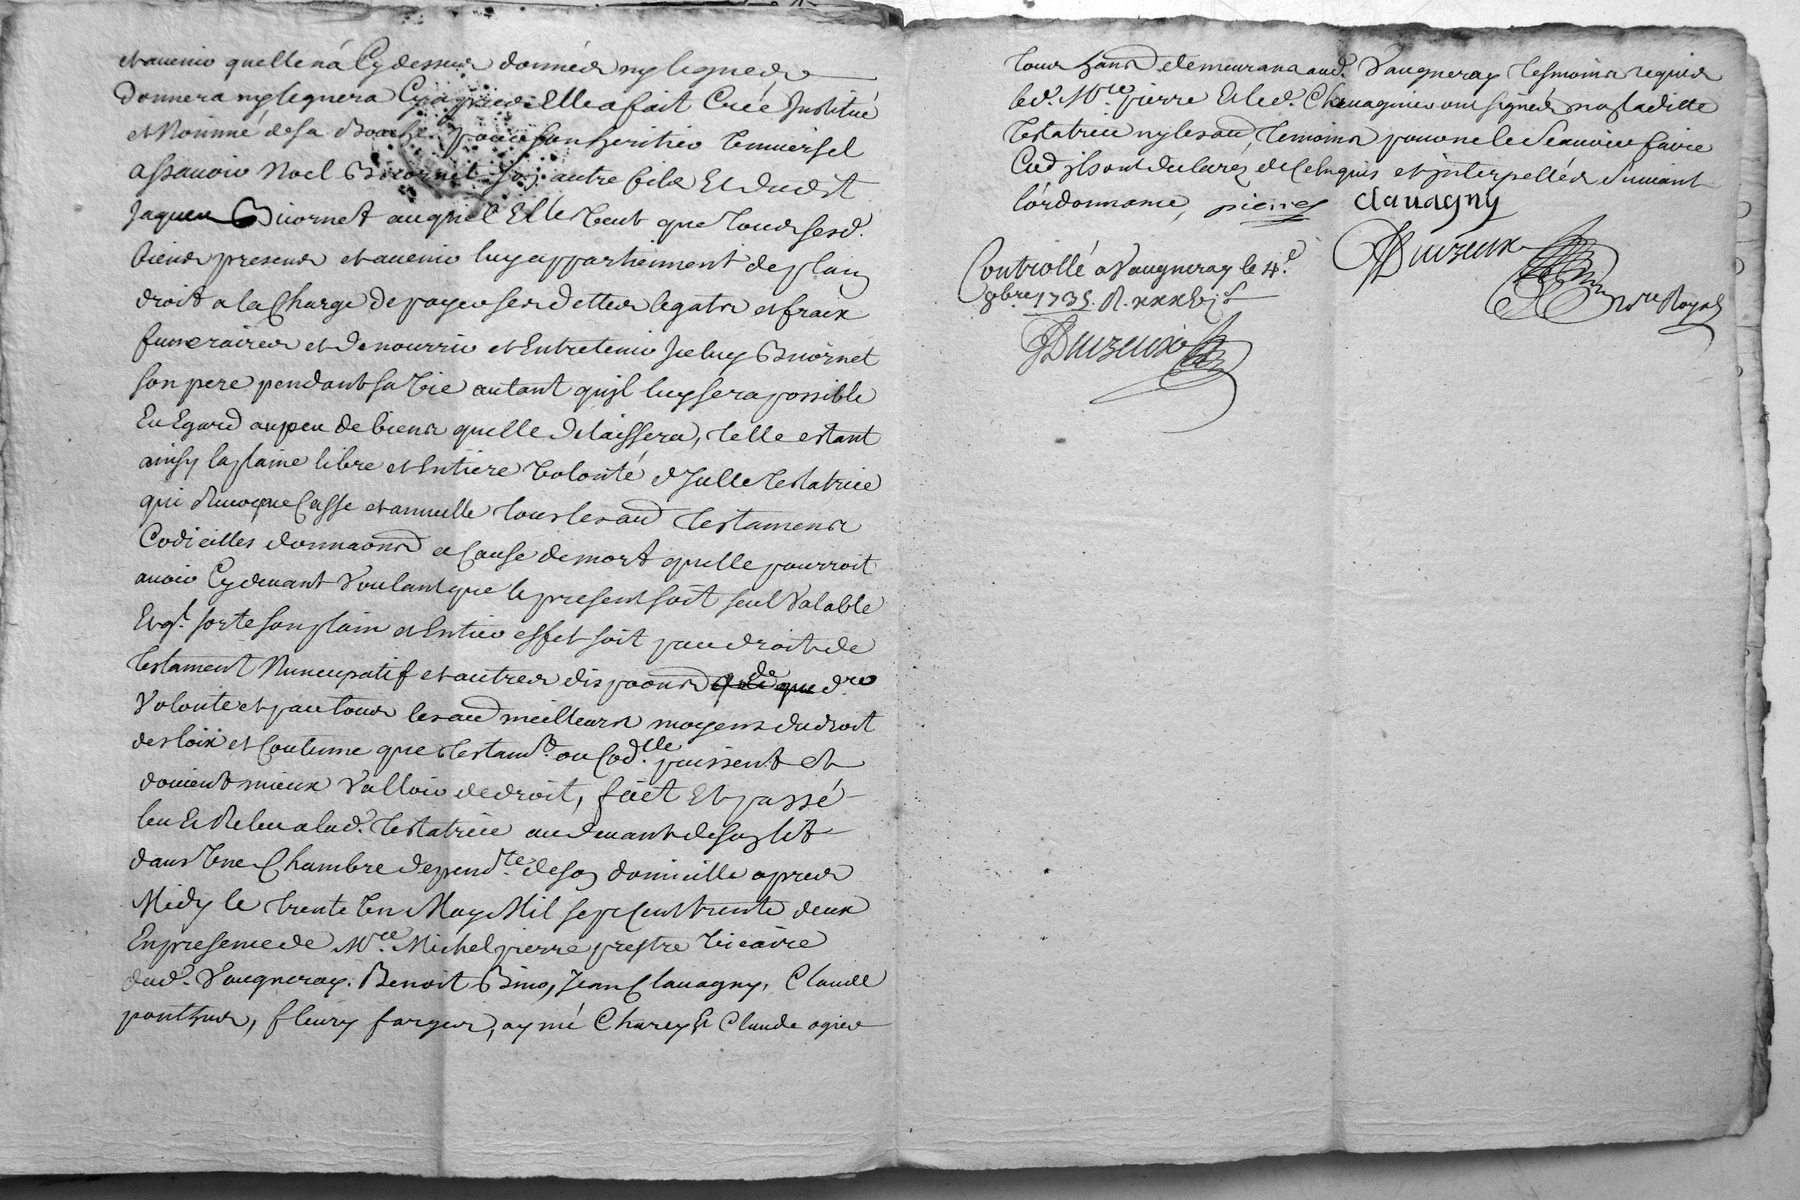 et avenir quelle n'a Cy dessus donnés ny legués
donnera ny leguera Cy apres Elle a fait Creé Institué
et Nommé de sa Bouche pour son heritier Universel
assavoir Noel Buornet son autre fils Et dudit
Jaques Buornet auquel Elle Veut que tous sesd.
biens presens et avenir luy appartiennent de plain
droit a la Charge de payer ses dettes legats et fraix
funeraires et de nourrir et Entretenir Jceluy Buornet
son pere pendant sa Vie autant qu'jl luy sera possible
Eu Egard au peu de biens quelle delaissera, telle estant
ainsy la plaine libre et Entiere Volonté d'Jcelle testatrice
qui Revoque Casse et annulle tous les aud testamens
Codicilles donnaons a Cause de mort quelle pourroit
avoir Cy devant Voulant que le present soit seul Valable
Et q. sorte son plain et Entier effet soit par droit de
testament Nuncupatif et autres dispoons de dre
Volonté et par tous les aud meilleurs moyens du droit
des loix et Coutume que testamt. ou Cod.lle puissent et
doivent mieux Valloir de droit, fait Et passé
leu Et Releu a lad. testatrice au devant de son lit
dans Une Chambre depend.te de son domicille apres
Midy le trente Un May Mil sept Cent trente deux
En presence de Mre. Michel pierre prestre Vicaire
dud. Vaugneray. Benoit Bino, Jean Clavagny, Claude
ponthus, fleury farges, aymé Charey Et Claude ogier
tous hans demeurans aud. Vaugneray tesmoins requis
led. Mre pierre Et led. Chavagnier ont signés non laditte
testatrice ny les aud temoins pour ne le Scavoir faire
Cod jls ont declarez de Ce Enquis et jnterpellés suivant
l'ordonnance, pierre clavagny
Controllé a Vaugneray le 4.e Duzeux
9bre 1735. R. xxxvj s Nre Royal
Duzeux